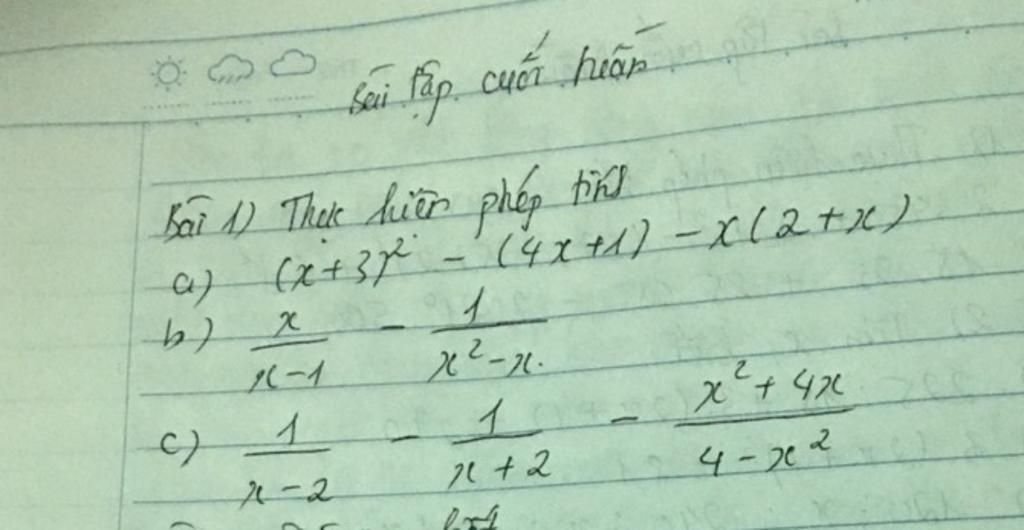 Bài tập cuối tuần
Bài 1) Thực hiện phép tính
a) (x+3)² - (4x+1) - x(2+x)
b) x/(x-1) - 1/(x²-x)
c) 1/(x-2) - 1/(x+2) - (x²+4x)/(4-x²)